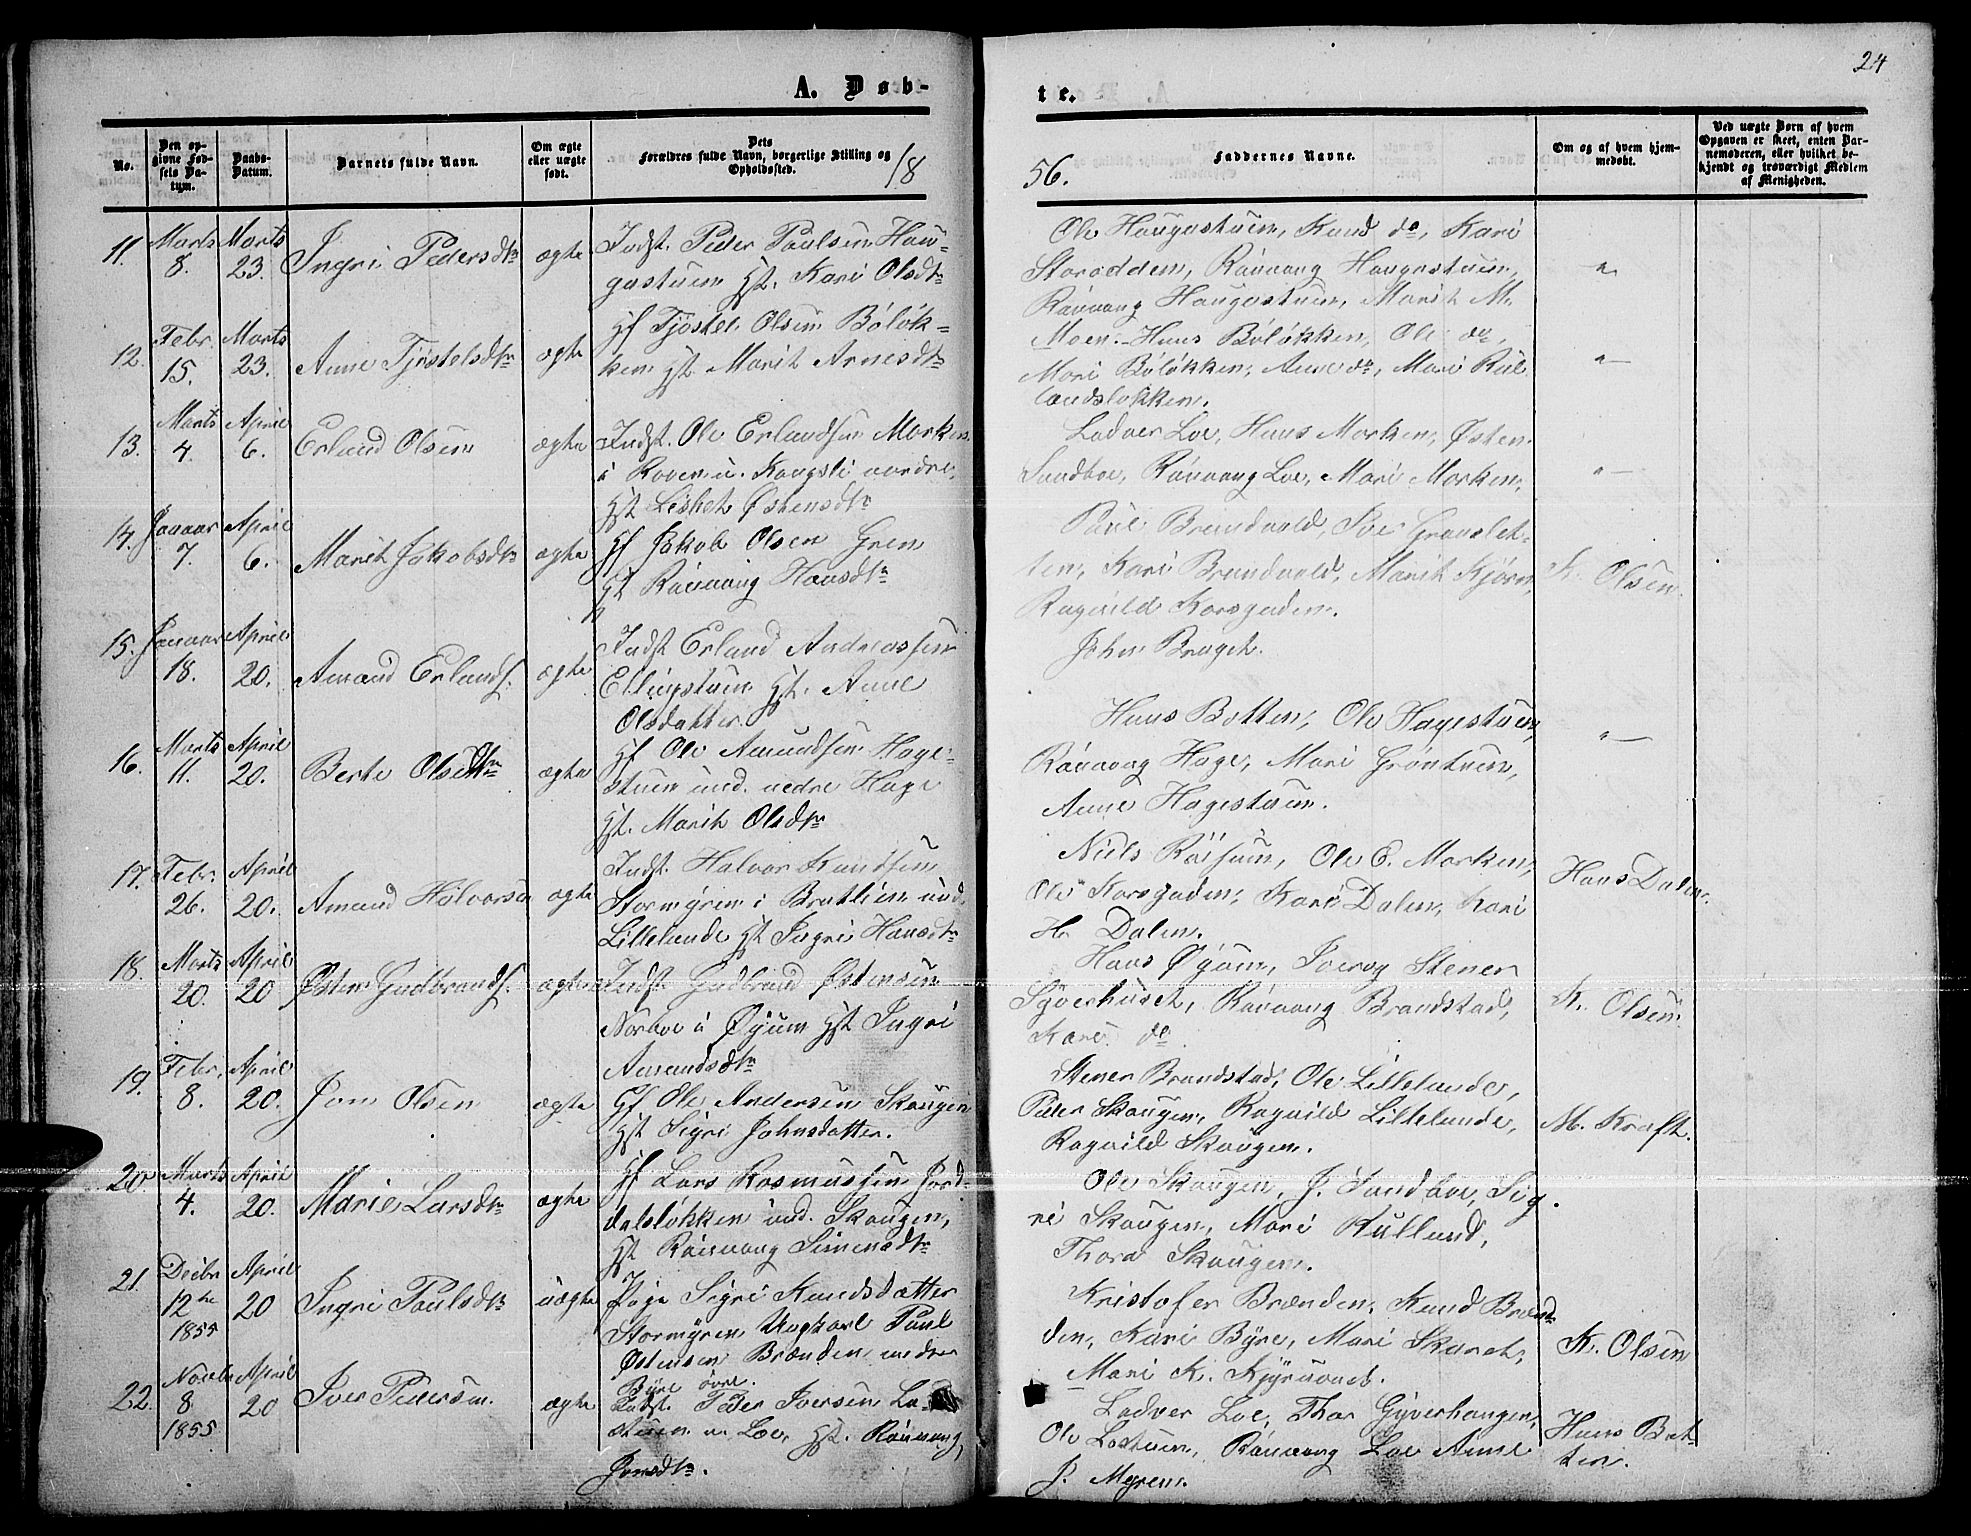 24
A. Døb-
te.
No.
Den op-
givne Fød-
sels Da-
tum.
Daabs-
Datum.
Barnets fulde Navn.
Om ægte
eller uægte
født.
Dets
Forældres fulde Navn, borgerlige Stilling og
Opholdssted.
18
56.
Faddernes Navne.
Om og af hvem hjem-
medøbt.
Ved uægte Børn af hvem
Opgaven er skeet, enten Bar-
nemoderen, eller hvilket be-
kjendt og troværdigt Medlem
af Menigheden.
11. Marts 8. Marts 23. Ingri Pedersdtr ægte Indst. Peder Paulsen Hau-
gastuen Hst. Kari Olsdtr
Ole Haugastuen, Knud do, Kari
Storødden, Rönnaug Haugastuen,
Rönnaug Haugastuen, Marit M.
Moen.
12. Febr. 15. Marts 23. Anne Tjöstelsdtr ægte Gf Tjöstel Olsen Bölök-
ken Hst. Marit Arnesdtr
Hans Bölökken, Ole do,
Mari Bölökken, Anne do, Mari Rul
landsløkken.
13. Marts 4. April 6. Erland Olsen ægte Indst. Ole Erlandsen Morken
i Roven u. Kongsli nordre,
Hst Lisbet Østensdtr
Ladver Loe, Hans Morken, Østen
Sandboe, Rönnaug Loe, Mari Morken,
14. Januar 7. April 6. Marit Jakobsdtr ægte Gf Jakob Olsen Gren
Hst Rönnaug Hansdtr
Paul Brendvold, Iver Granslet-
ten, Kari Brendvold, Marit Kjörn,
Ragnild Korsgaden.
John Bragct.
K. Olsen.
15. Januar 18. April 20. Amund Erlands. ægte Indst Erland Andreassen
Ellingstuen Hst. Anne
Olsdatter
16. Marts 11. April 20. Berte Olsdtr ægte Gf Ole Amundsen Hage-
stuen und. nedre Hage
Hst. Marit Olsdtr
Hans Botten, Ole Hagestuen,
Rönnaug Hage, Mari Gröntuen,
Anne Hagestuen.
17. Febr. 26. April 20. Amund Halvorsen ægte Indst. Halvor Knudsen
Stormyren i Bratlien und.
Lillelunde Hst Ingri Hansdtr
Niels Röisum, Ole E. Morken,
Ole Korsgaden, Kari Dalen, Kari
H. Dalen.
Hans Dalen.
18. Marts 20. April 20 Østen Gudbrands. ægte Indst Gudbrand Østensen
Norboe i Øyum Hst Ingri
Amundsdtr
Hans Øyum, Iver og Stener
Syverhuset, Rönnaug Brandstad,
Kari do
K. Olsen
19. Febr. 8. April 20. Jon Olsen ægte Gf Ole Andersen Skougen
Hst Sigri Johnsdatter.
Stener Brandstad, Ole Lillelunde,
Peder Skougen, Ragnild Lillelunde,
Ragnild Skougen.
M. Kraft.
20. Marts 4. April 20. Marie Larsdtr ægte Gf Lars Rasmussen Jord-
dalsløkken und. Skougen,
Hst Rönnaug Simensdtr
Ole Skougen, J. Sandboe, Sig
ri Skougen, Mari Kulland,
Thora Skougen.
21. Decbr 12te 1855 April 20 Ingri Paulsdtr uægte Pige Sigri Knudsdatter
Stormyren Ungkarl Paul
Østensen Brænden nedre
Byre övre.
Kristofer Brænden, Knud Bræn
den, Kari Byre, Mari Skaret,
Mari K. Kjyruvand.
K. Olsen
22. Novbr 8 1855 April 20 Iver Pedersen ægte Indst. Peder Iversen Lo-
stuen u Loe, Hst. Rönnaug
Jonsdtr.
Ladver Loe, Thor Gyverhaugen,
Ole Lostuen, Rönnaug Loe Anne
J. Myren.
Hans Bot-
ten.